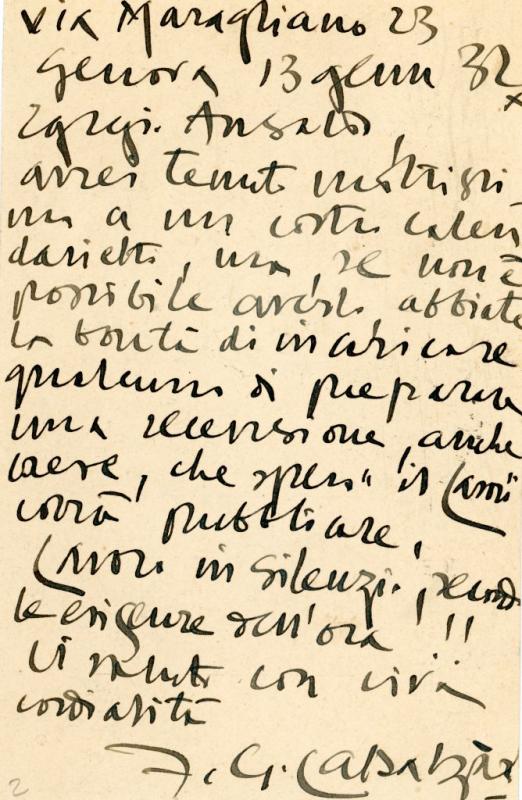 via Maragliano 23
Genova 13 genn 32
x
Egregi. Ansaldo,
avrei tenuto moltissi
mo a un vostro calen
darietto, ma, se non è
possibile averlo abbiate
la bontà di incaricare
qualcuno di preparare
una recensione, anche
breve, che spero "il Lavoro"
vorrà pubblicare.
Lavoro in silenzio, secondo
le esigenze dell'ora!!
Vi saluto con viva
cordialità
F. G.
2